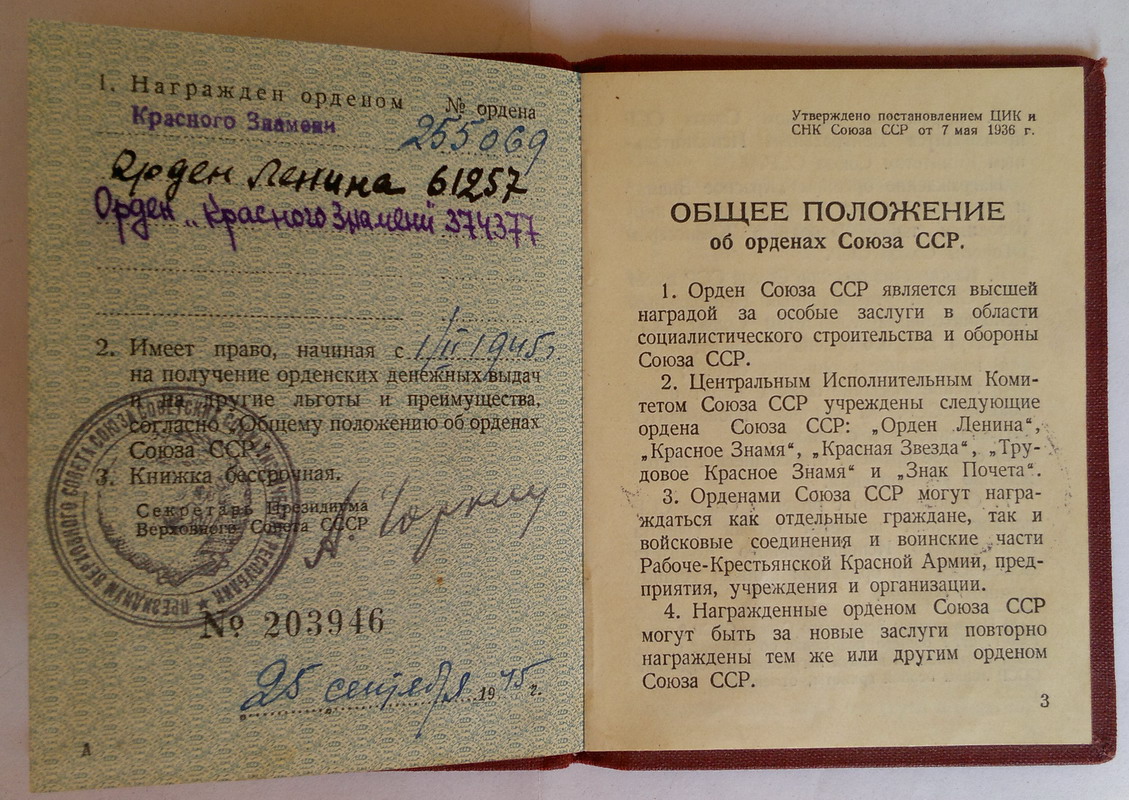 1. Награжден орденом № ордена
Красного Знамени 255069
Орден Ленина 61257
Орден „Красного Знамени" 374377
2. Имеет право, начиная с 1/II 1945г
на получение орденских денежных выдач
и на другие льготы и преимущества,
согласно Общему положению об орденах
Союза ССР.
3. Книжка бессрочная.
Секретарь Президиума
Верховного Совета СССР
А. Горкин
ПРЕЗИДИУМ ВЕРХОВНОГО СОВЕТА СОЮЗА СОВЕТСКИХ
№ 203946
25 сентября 1945 г.
А
Утверждено постановлением ЦИК и
СНК Союза ССР от 7 мая 1936 г.
ОБЩЕЕ ПОЛОЖЕНИЕ
об орденах Союза ССР.
1. Орден Союза ССР является высшей
наградой за особые заслуги в области
социалистического строительства и обороны
Союза ССР.
2. Центральным Исполнительным Коми-
тетом Союза ССР учреждены следующие
ордена Союза ССР: „Орден Ленина“,
„Красное Знамя“, „Красная Звезда“, „Тру-
довое Красное Знамя“ и „Знак Почета“.
3. Орденами Союза ССР могут награ-
ждаться как отдельные граждане, так и
войсковые соединения и воинские части
Рабоче-Крестьянской Красной Армии, пред-
приятия, учреждения и организации.
4. Награжденные орденом Союза ССР
могут быть за новые заслуги повторно
награждены тем же или другим орденом
Союза ССР.
3